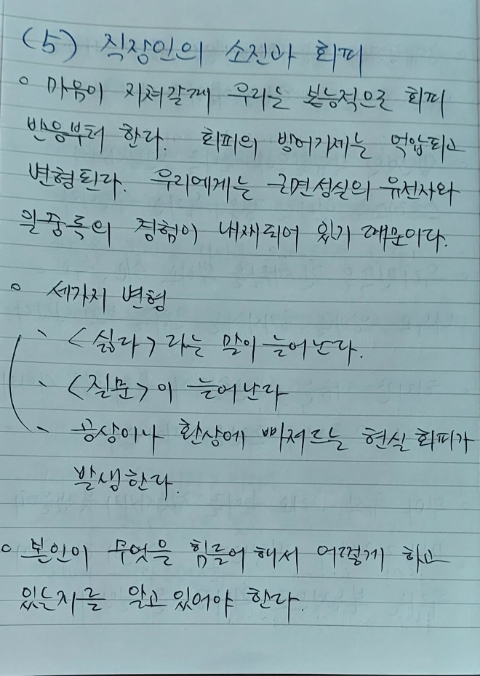 (5) 직장인의 소진과 회피
o 마음이 지쳐갈때 우리는 본능적으로 회피
반응부터 한다. 회피의 방어기제는 억압되고
변형된다. 우리에게는 근면성실의 유전자와
일중독의 경험이 내재되어 있기 때문이다.
o 세가지 변형
- <싫다>라는 말이 늘어난다.
- <질문>이 늘어난다
- 공상이나 환상에 빠져드는 현실회피가
발생한다.
o 본인이 무엇을 힘들어해서 어떻게 하고
있는지를 알고있어야 한다.